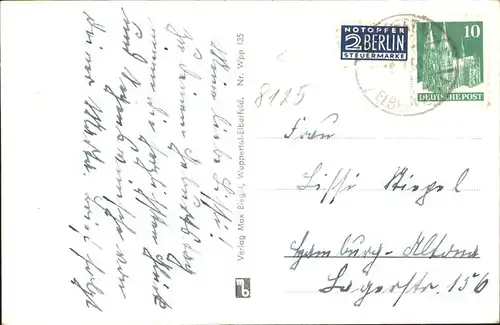 Meine liebe Lissi!
Zu Deinem Geburtstag
nimm die herzlichsten Glück
und Segenswünsche von
Deiner Martha. Brief folgt
Verlag Max Biegel, Wuppertal-Elberfeld. Nr. Wpp 135
mb
8125
NOTOPFER
2 BERLIN
STEUERMARKE
10
DEUTSCHE POST
Frau
Lissi Stiegel
Hamburg-Altona
Lagerstr. 156